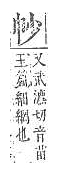 又武瀌切音苗
玉篇細網也